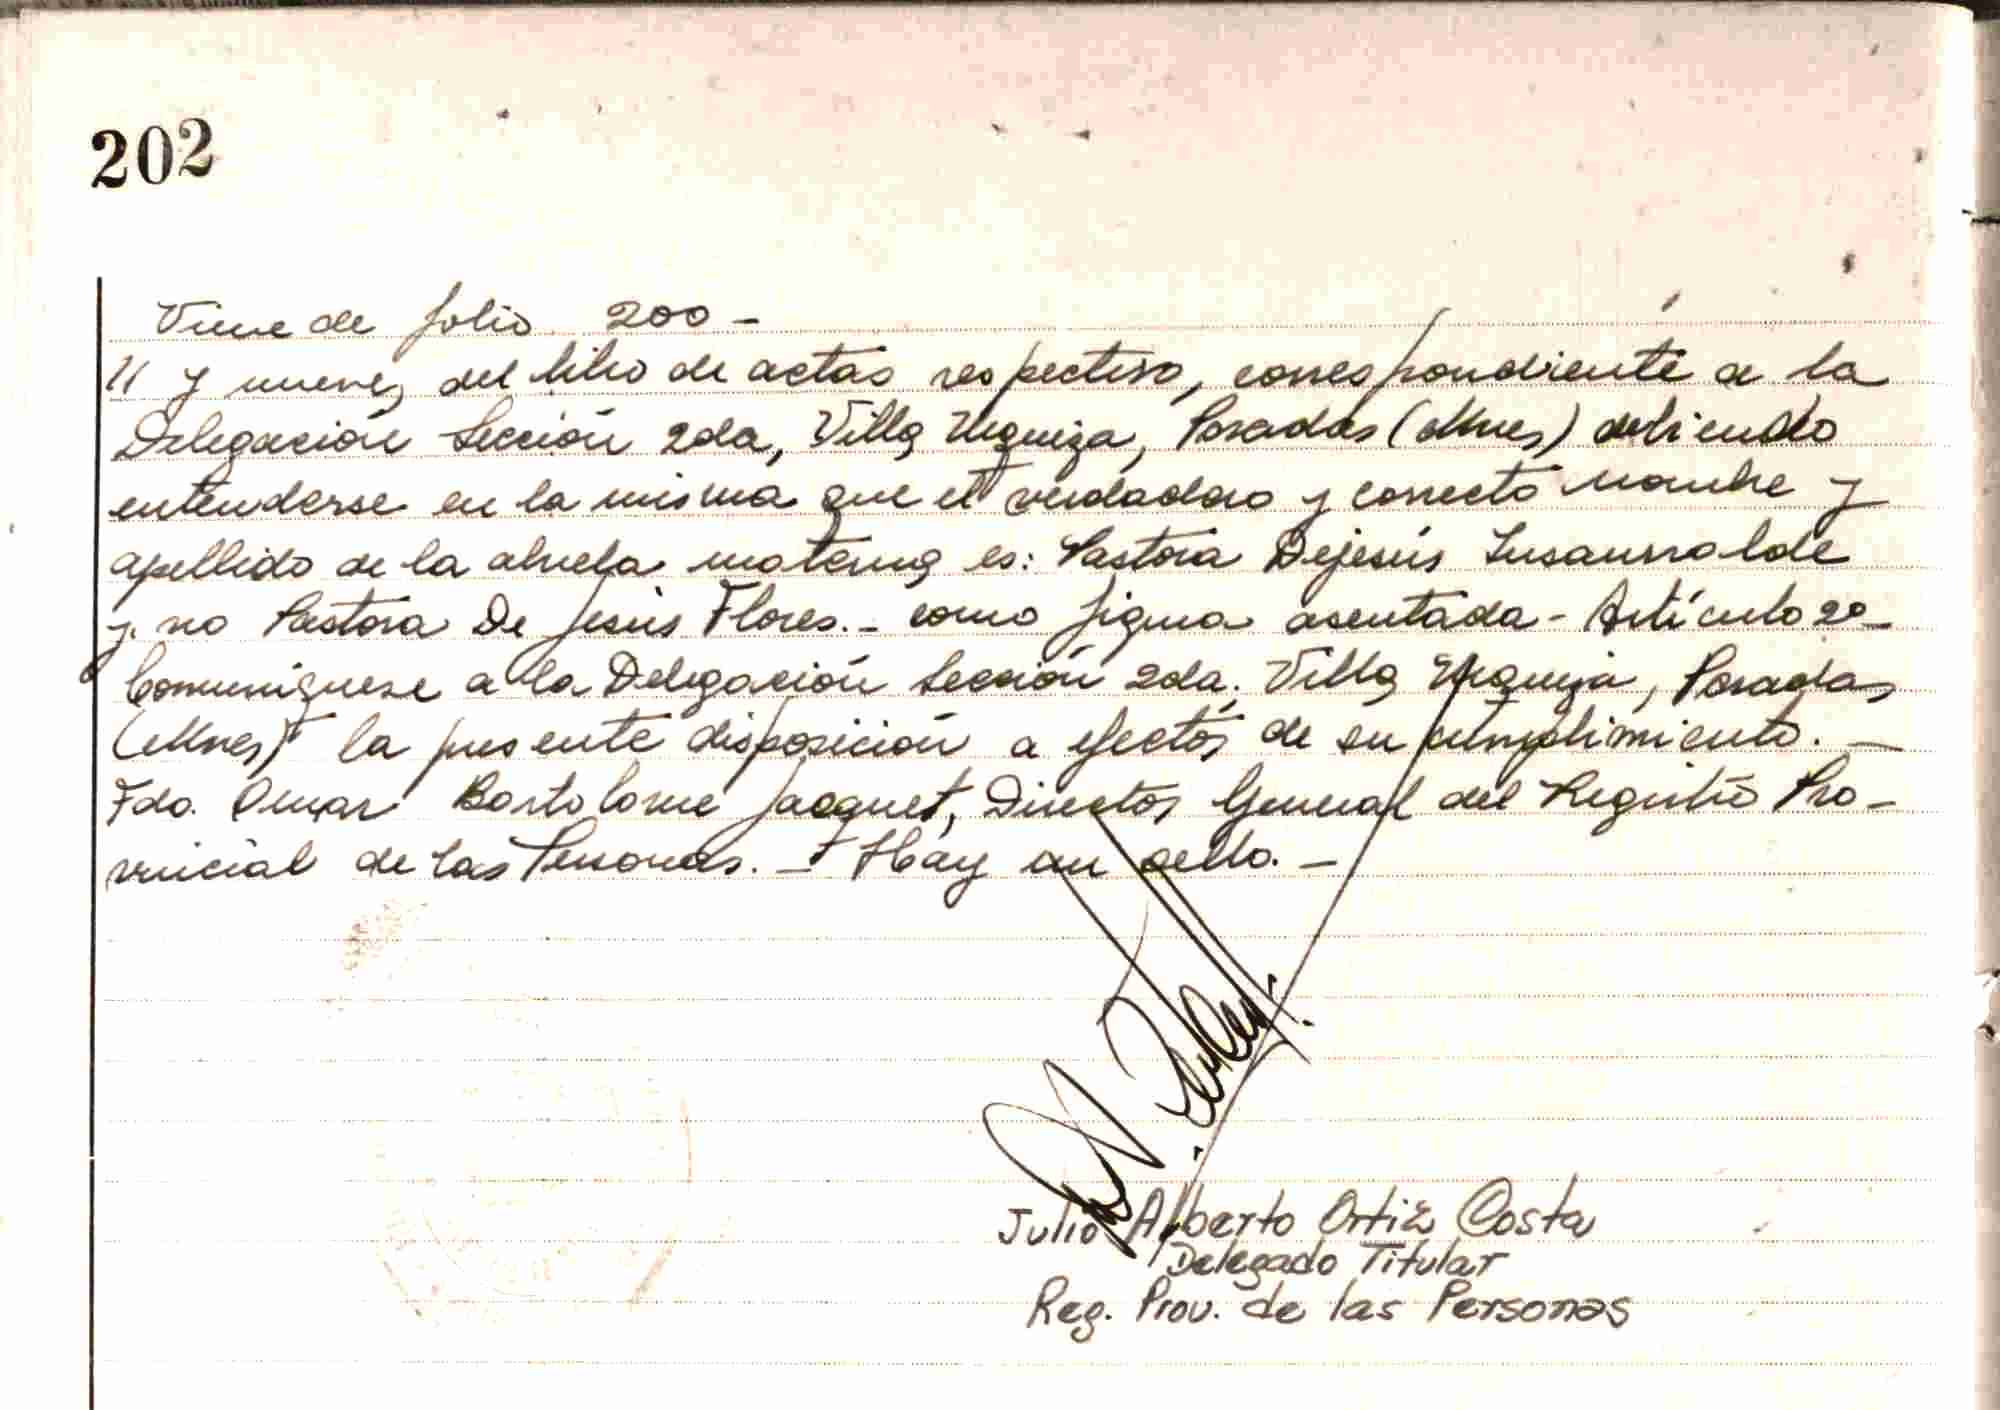 202
Viene de folio 200 -
// y nueve, del libro de actas respectivo, correspondiente a la
Delegación Sección 2da, Villa Urquiza, Posadas (Mnes) debiendo
entenderse en la misma que el verdadero y correcto nombre y
apellido de la abuela materna es: Pastora Dejesús Insaurralde
y no Pastora De Jesús Flores. - como figura asentada - Artículo 2º -
Comuníquese a la Delegación Sección 2da. Villa Urquiza, Posadas
(Mnes) la presente disposición a efectos de su cumplimiento. -
Fdo. Omar Bartolome Jacquet, Director General del Registro Pro-
vincial de las Personas. - Hay un sello. -
Julio Alberto Ortiz Costa
Delegado Titular
Reg. Prov. de las Personas